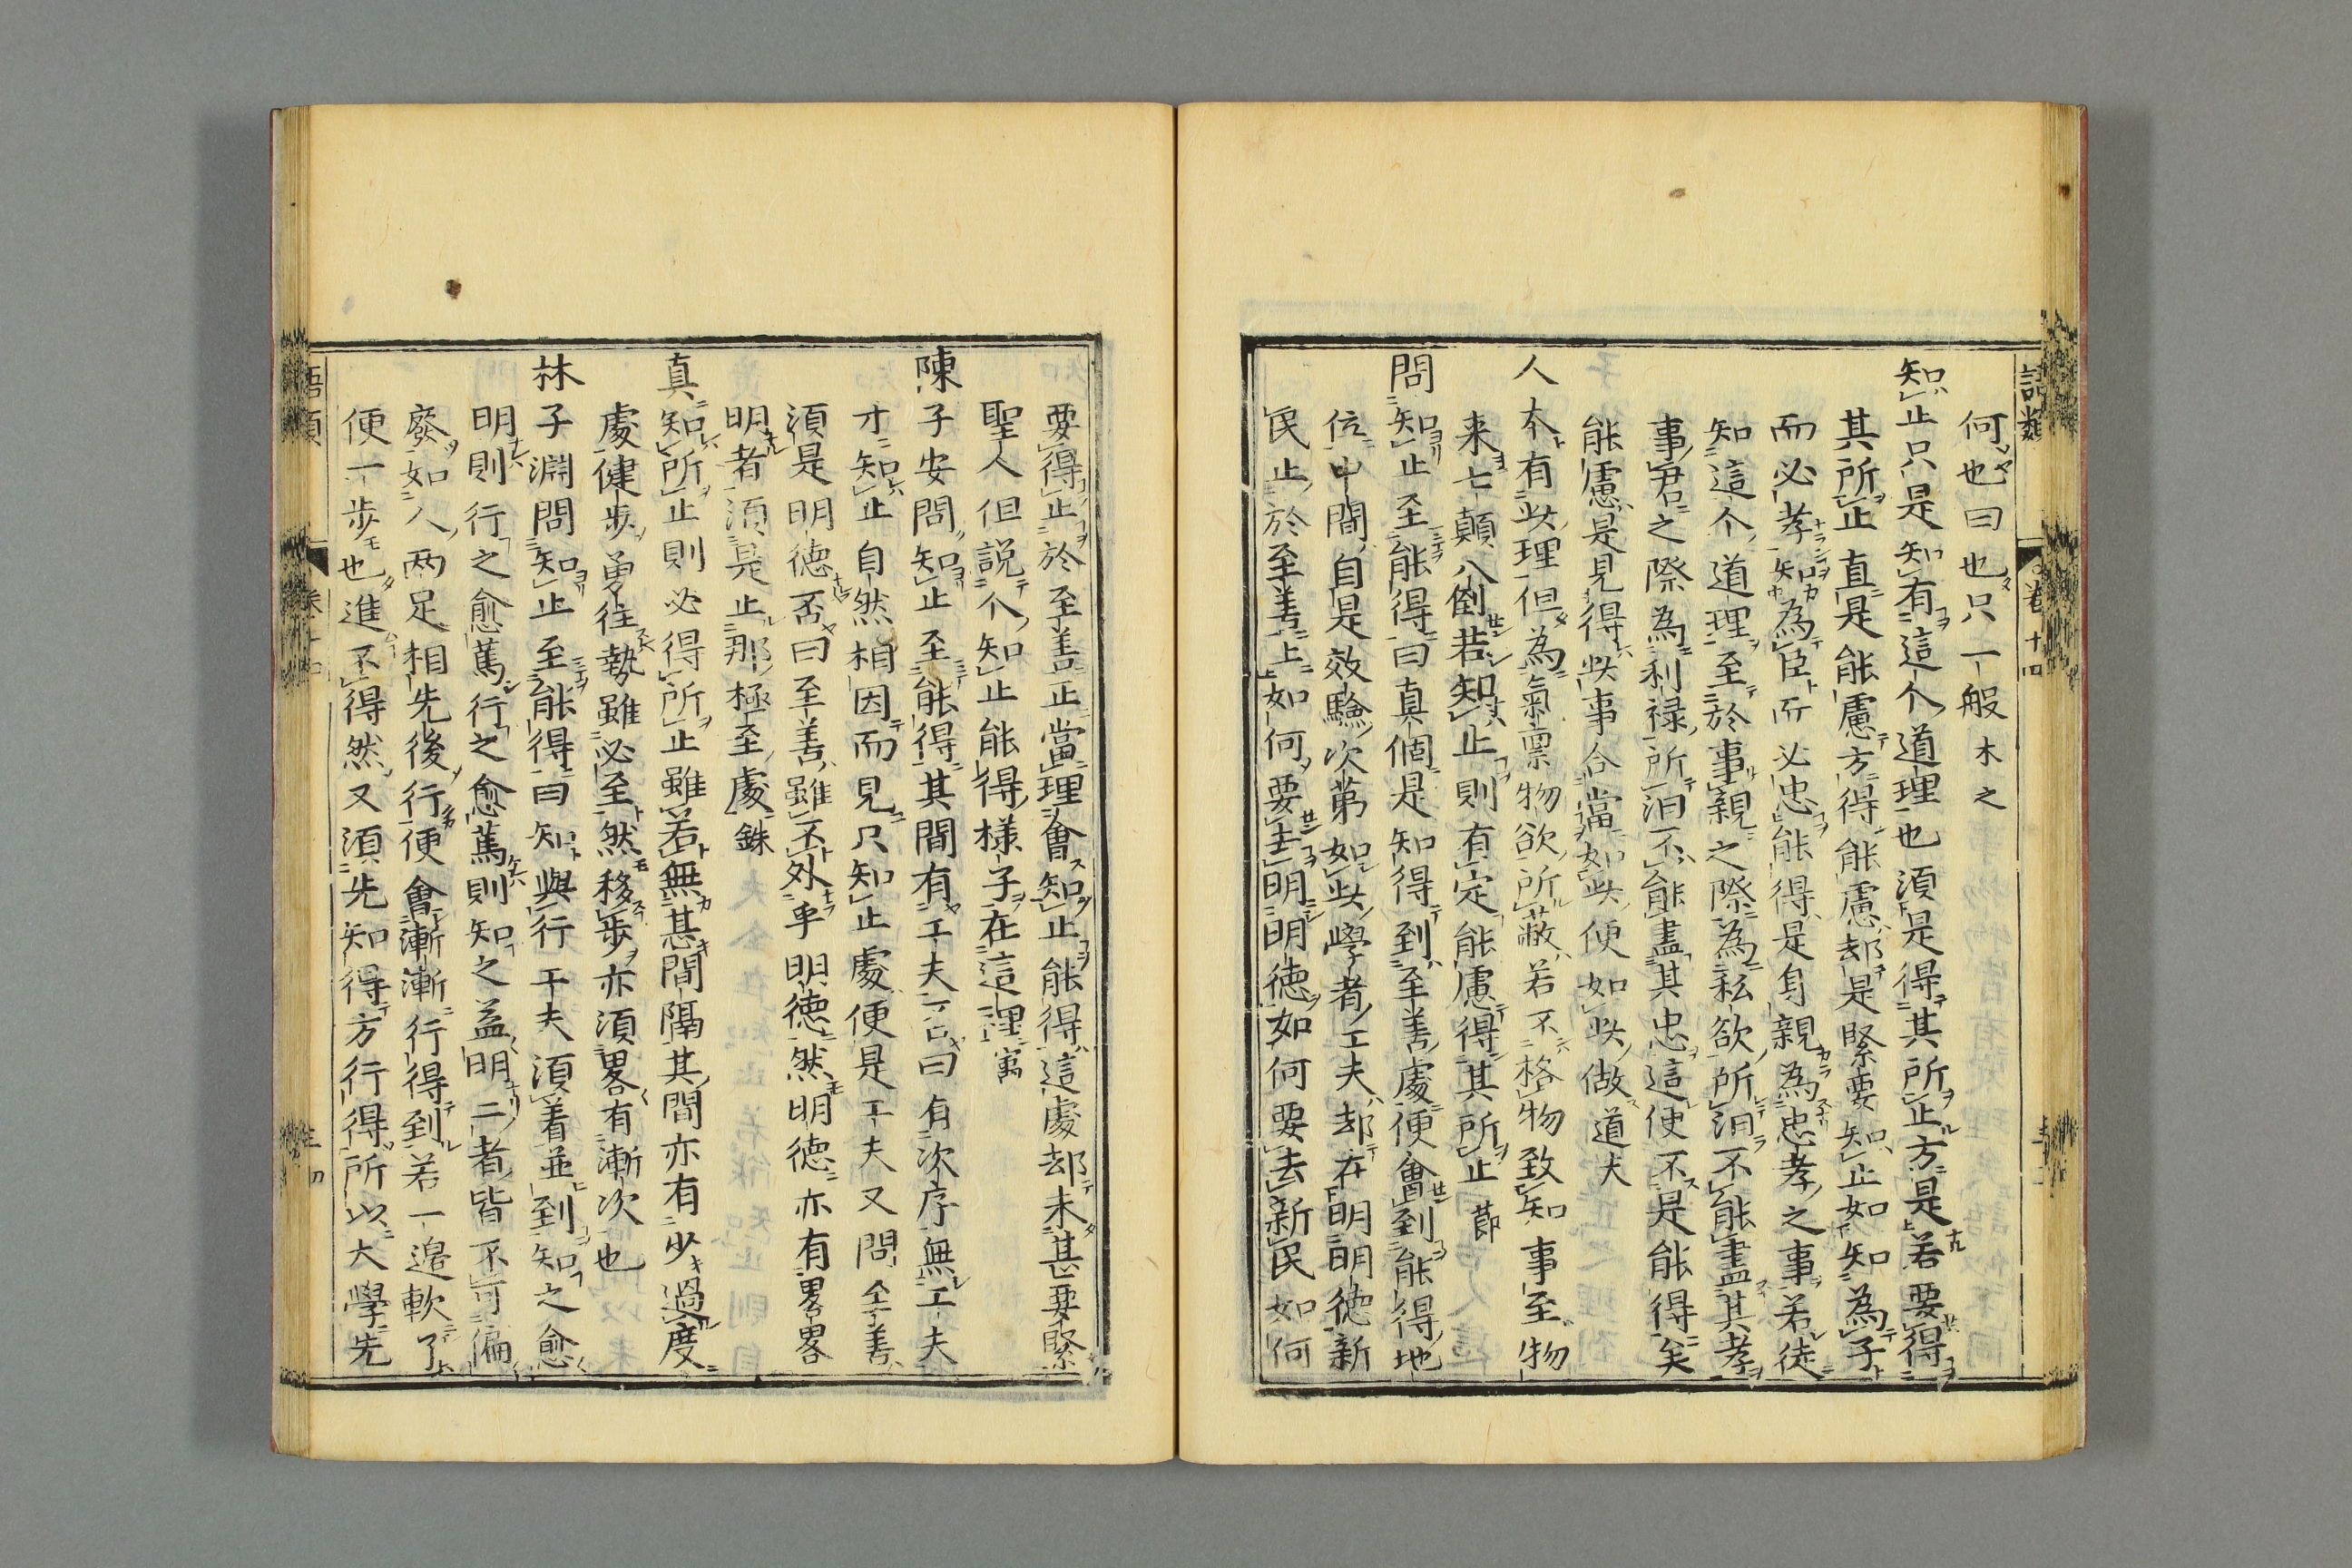 語類 卷十四
何也曰也只一般木之
知止只是知有這个道理也須是得其所止方是若要得
其所止直是能慮方得能慮却是緊要知止如知為子
而必孝知為臣而必忠能得是身親為忠孝之事若徒
知這个道理至於事親之際為私欲所汩不能盡其孝
事君之際為利禄所汩不能盡其忠這便不是能得矣
能慮是見得此事合當如此便如此做道夫
人本有此理但為氣禀物欲所蔽若不格物致知事至物
来七顛八倒若知止則有定能慮得其所止節
問知止至能得曰真個是知得到至善處便會到能得地
位中間自是效驗次第如此學者工夫却在明明德新
民止於至善上如何要去明明德如何要去新民如何
要得止於至善正當理會知止能得這處却未甚要緊
聖人但説个知止能得樣子在這裡㝢
陳子安問知止至能得其間有工夫否曰有次序無工夫
才知止自然相因而見只知止處便是工夫又問至善
須是明德否曰至善雖不外乎明德然明德亦有畧畧
明者須是止那極至處銖
真知所止則必得所止雖若無甚間隔其間亦有少過度
處健步勇往勢雖必至然移步亦須畧有漸次也
林子淵問知止至能得曰知與行工夫須着並到知之愈
明則行之愈篤行之愈篤則知之益明二者皆不可偏
廢如人兩足相先後行便會漸漸行得到若一邊軟了
便一步也進不得然又須先知得方行得所以大學先
語類 卷十四